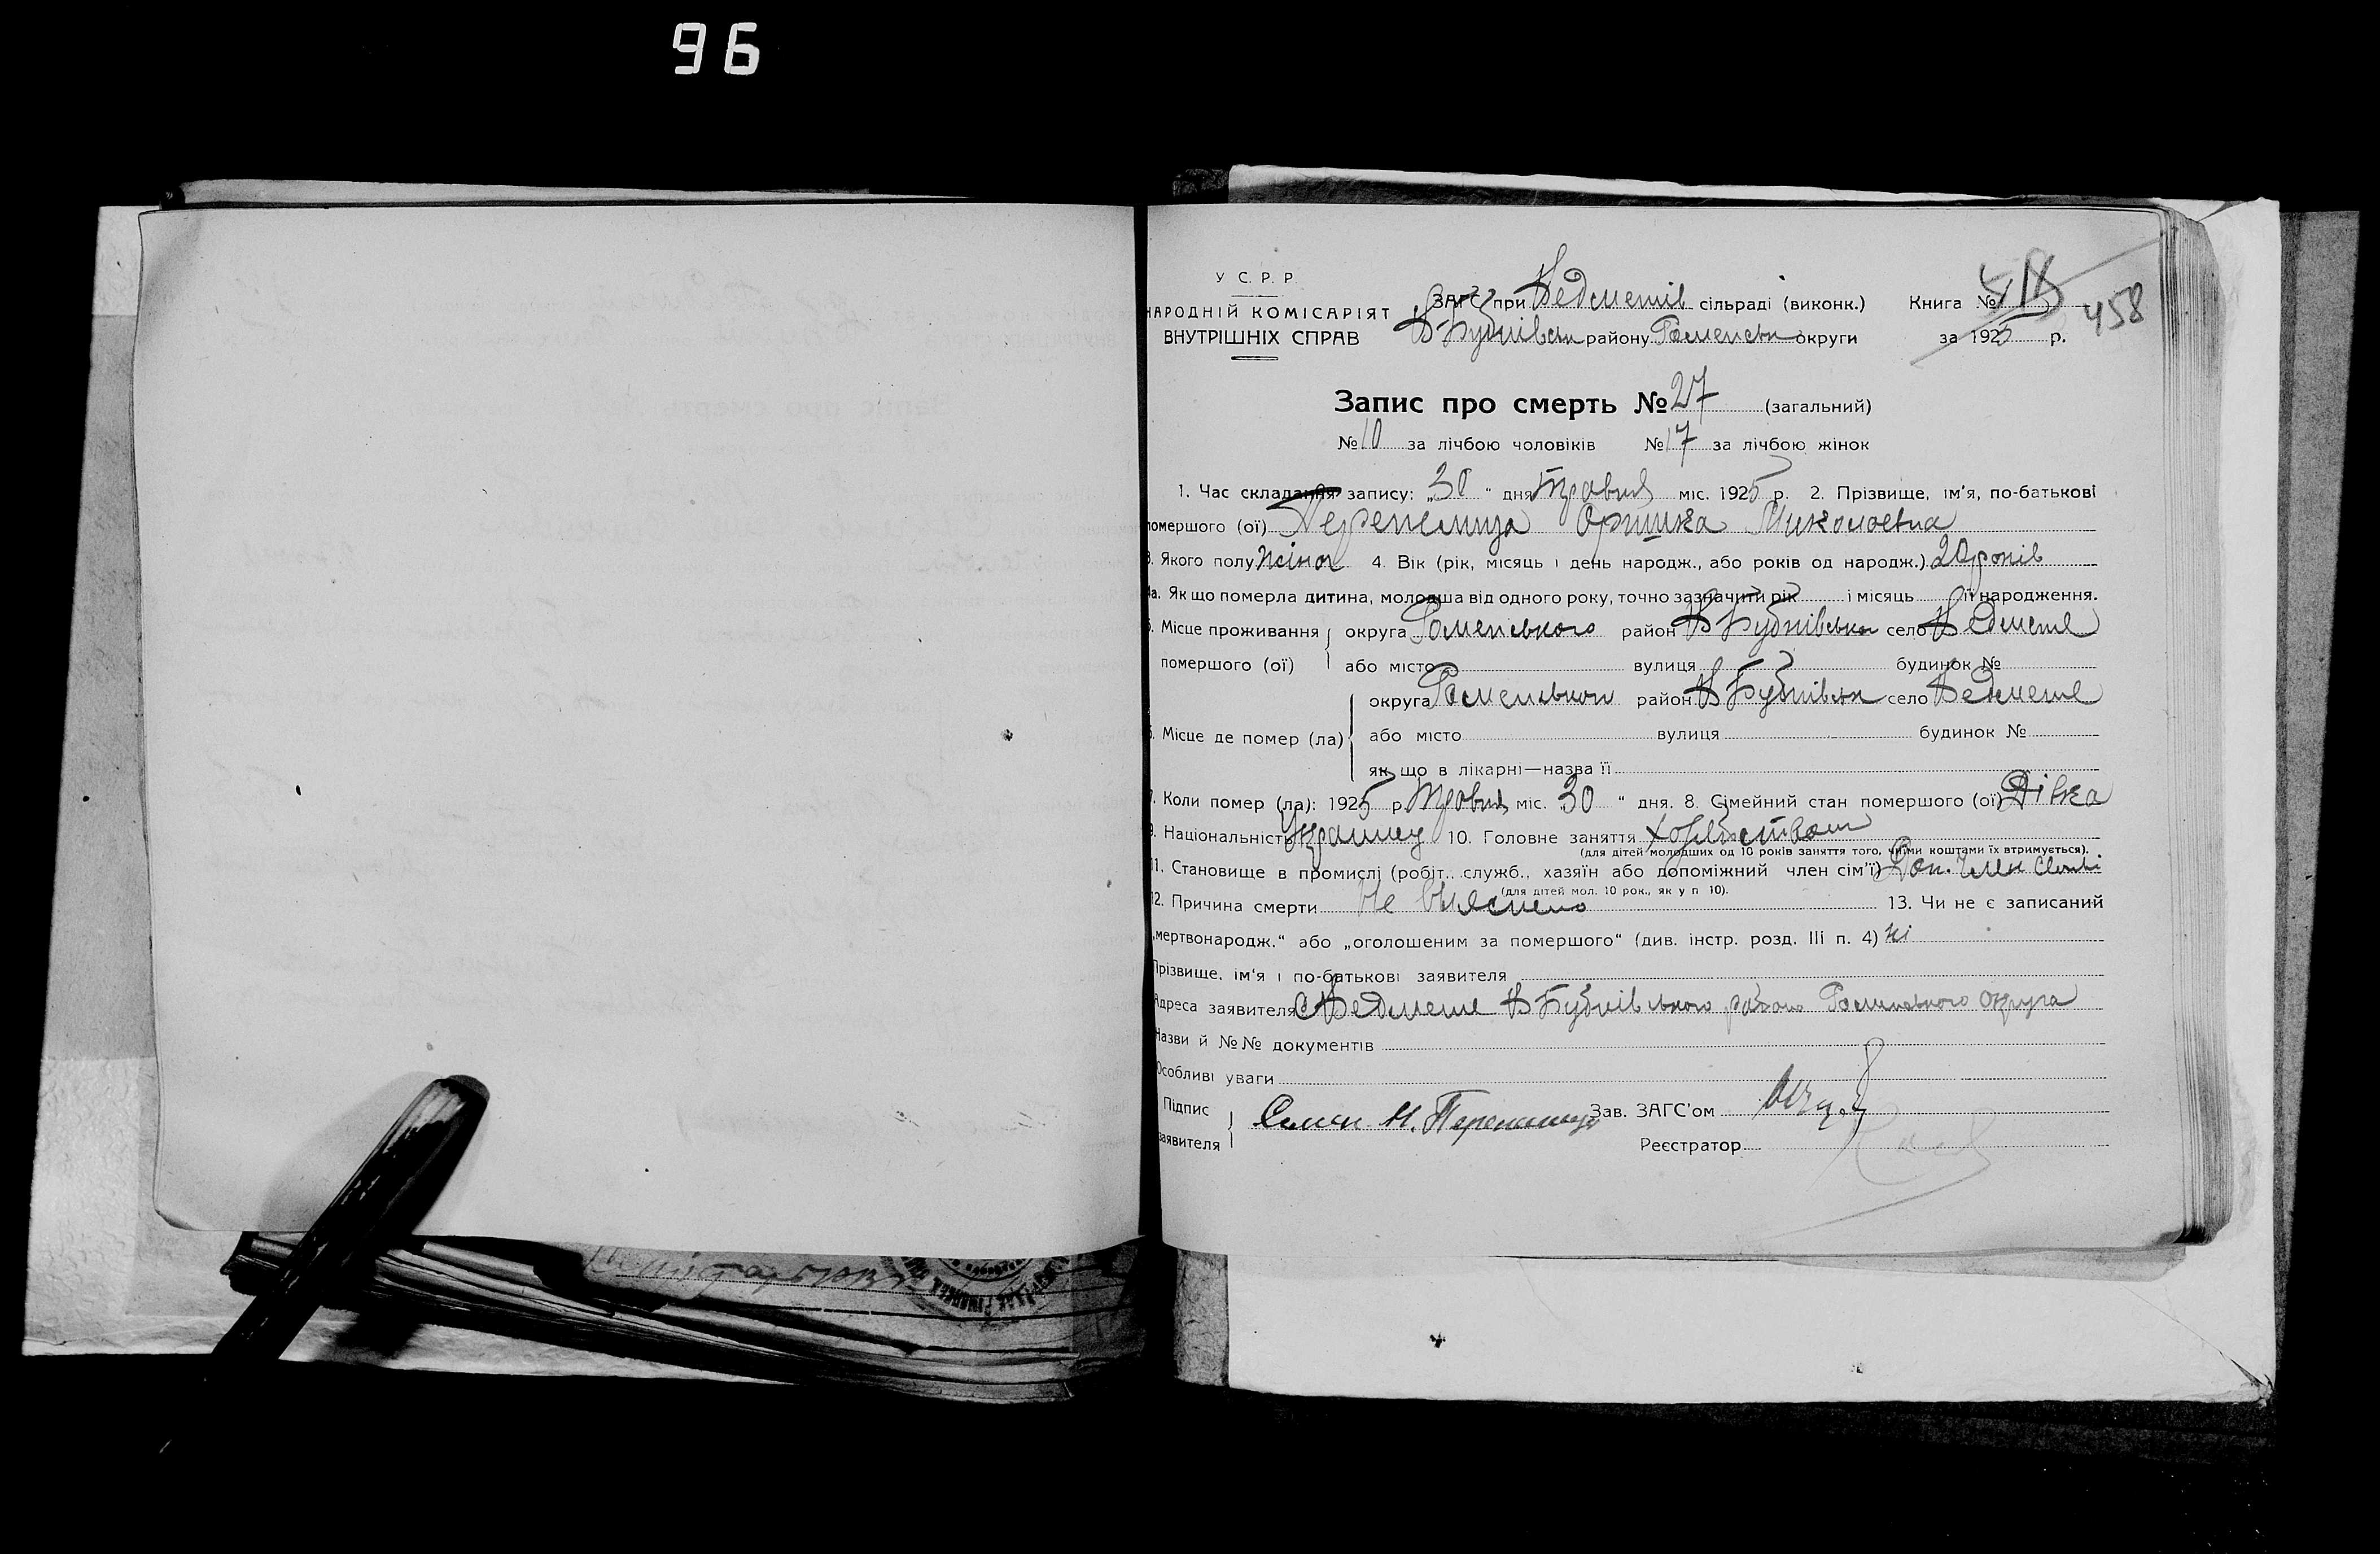 96
У С. Р. Р
НАРОДНІЙ КОМІСАРІЯТ
ВНУТРІШНІХ СПРАВ
ЗАГС при сільраді (виконк.)
району Роменськ округи
Книга №
458
за 1925 р.
Запис про смерть № 27 (загальний)
№ 10 за лічбою чоловіків № 17 за лічбою жінок
1. Час складання запису: „30“ дня Травня міс. 1925 р. 2. Прізвище, ім'я, по-батькові
помершого (ої) Перепелиця Оришка Миколаевна
3. Якого полу жіноч 4. Вік (рік, місяць і день народж., або років од народж.) 20 років
4а. Як що померла дитина, молодша від одного року, точно зазначити рік і місяць її народження.
5. Місце проживання округа Роменського район село
помершого (ої) або місто вулиця будинок №
округа Роменьског район село
6. Місце де помер (ла) або місто вулиця будинок №
як що в лікарні—назва її
7. Коли помер (ла): 1925 р Травня міс. 30 “ дня. 8. Сімейний стан помершого (ої) Дівка
9. Національність 10. Головне заняття
(для дітей молодших од 10 років заняття того, чиїми коштами їх втримується).
11. Становище в промислі (робіт.. служб., хазяїн або допоміжний член сім'ї) Доп. член
(для дітей мол. 10 рок., як у п 10).
12. Причина смерти Не 13. Чи не є записаний
„мертвонародж.“ або „оголошеним за помершого“ (див. інстр. розд. III п. 4) ні
Прізвище, ім'я і по-батькові заявителя
Адреса заявителя с округа
Назви й №№ документів
Особливі уваги
Підпис
заявителя
М. Перепелиця
Зав. ЗАГС'ом
Реєстратор